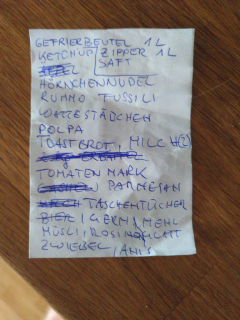 GEFRIERBEUTEL 1L
KETCHUP / ZIPPER 1L
SAFT
HÖRNCHENNUDEL
RUMMO FUSSILI
WATTESTÄDCHEN
POLPA
TOASTBROT, MILCH (2)
TOMATEN MARK
PARMESAN
TASCHENTÜCHER
BIER, GERM, MEHL
MÜSLI, ROSINEN, BLATT
ZWIEBEL, ANIS